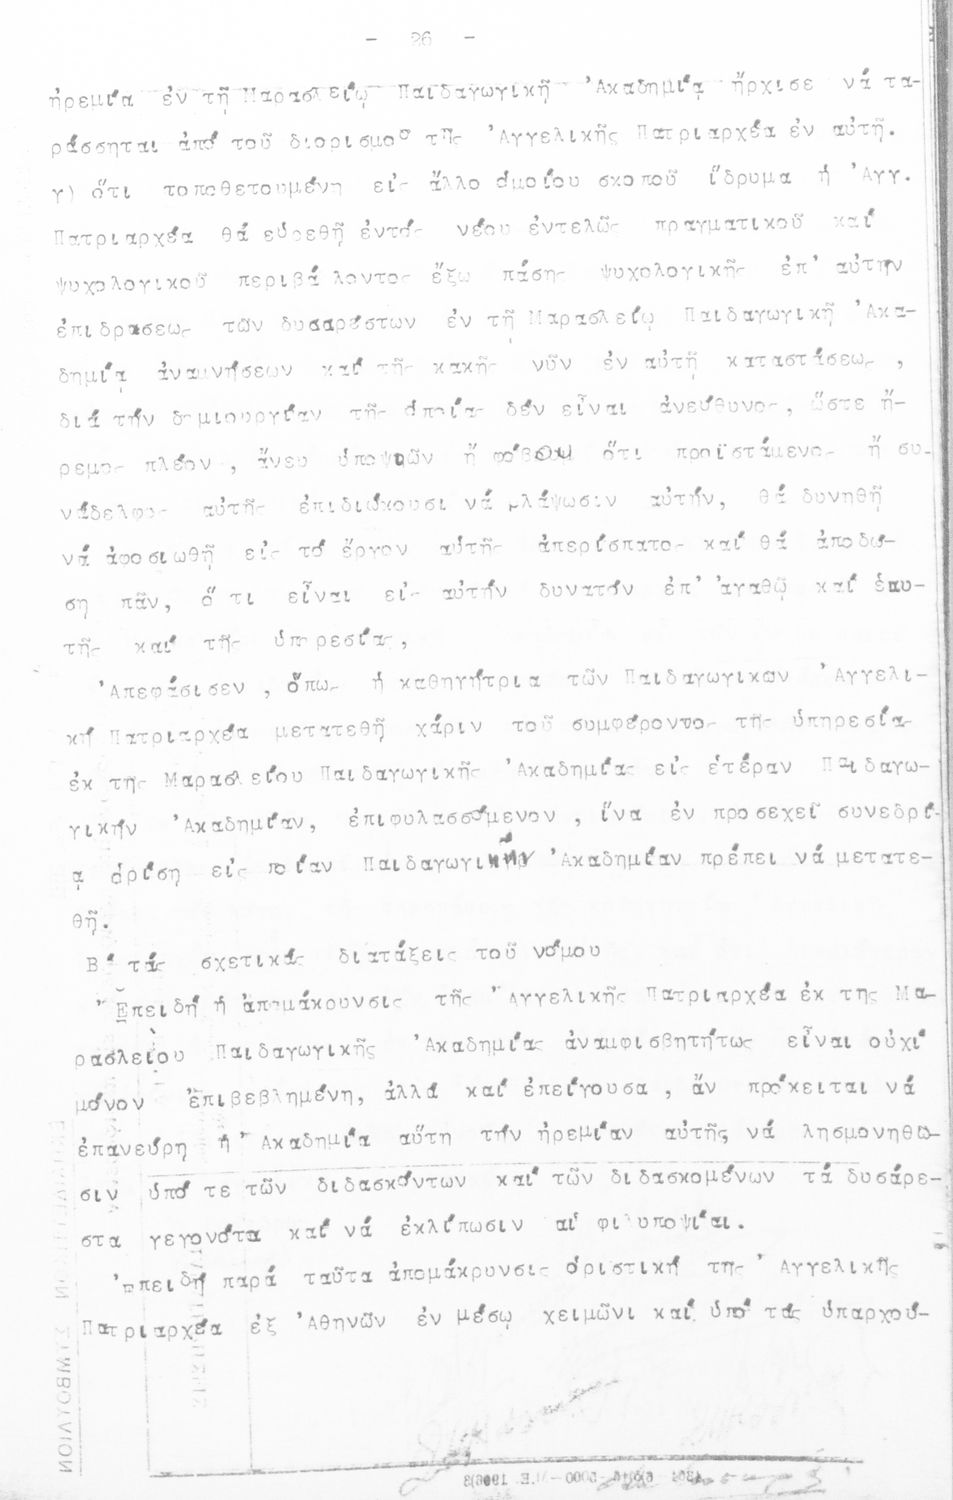 - 26 -
ἠρεμία ἐν τῇ Μαρασλείῳ Παιδαγωγικῇ Ἀκαδημίᾳ ἤρχισε νά τα-
ράσσηται ἀπό τοῦ διορισμοῦ τῆς Ἀγγελικῆς Πατριαρχέα ἐν αὐτῇ.
γ) ὅτι τοποθετουμένη εἰς ἄλλο ὁμοίου σκοποῦ ἵδρυμα ἡ Ἀγγ.
Πατριαρχέα θά εὑρεθῇ ἐντός νέου ἐντελῶς πραγματικοῦ καί
ψυχολογικοῦ περιβάλοντος ἔξω πάσης ψυχολογικῆς ἐπ' αὐτήν
ἐπιδράσεως τῶν δυσαρέστων ἐν τῇ Μαρασλείῳ Παιδαγωγικῇ Ἀκα-
δημίᾳ ἀναμνήσεων καί τῆς κακῆς νῦν ἐν αὐτῇ καταστάσεως ,
διά τήν δημιουργίαν τῆς ὁποίας δέν εἶναι ἀνεύθυνος, ὥστε ἤ-
ρεμος πλέον , ἄνευ ὑποψιῶν ἤ φόβου ὅτι προϊστάμενοι ἤ συ-
νάδελφοι αὐτῆς ἐπιδιώκουσι νά βλάψωσιν αὐτήν, θά δυνηθῇ
νά ἀφοσιωθῇ εἰς τό ἔργον αὐτῆς ἀπερίσπατος καί θά ἀποδώ-
ση πᾶν, ὅ τι εἶναι εἰς αὐτήν δυνατόν ἐπ' ἀγαθῷ καί ἑαυ-
τῆς καί τῆς ὑπηρεσίας,
Ἀπεφάσισεν , ὅπως ἡ καθηγήτρια τῶν Παιδαγωγικων Ἀγγελι-
κή Πατριαρχέα μετατεθῇ χάριν τοῦ συμφέροντος τῆς ὑπηρεσίας
ἐκ της Μαρασλείου Παιδαγωγικῆς Ἀκαδημίας εἰς ἑτέραν Παιδαγω-
γικήν Ἀκαδημίαν, ἐπιφυλασσόμενον , ἵνα ἐν προσεχεῖ συνεδρί-
ᾳ ὁρίση εἰς ποίαν Παιδαγωγικήν Ἀκαδημίαν πρέπει νά μετατε-
θῇ.
Β΄ τάς σχετικάς διατάξεις τοῦ νόμου
Ἐπειδή ἡ ἀπομάκουνσις τῆς Ἀγγελικῆς Πατριαρχέα ἐκ της Μα-
ρασλείου Παιδαγωγικῆς Ἀκαδημίας ἀναμφισβητήτως εἶναι οὐχί
μόνον ἐπιβεβλημένη, ἀλλά καί ἐπείγουσα , ἄν πρόκειται νά
ἐπανεύρη ἡ Ἀκαδημία αὕτη τήν ἠρεμίαν αὐτῆς, νά λησμονηθῶ-
σιν ὑπό τε τῶν διδασκόντων καί τῶν διδασκομένων τά δυσάρε-
στα γεγονότα καί νά ἐκλίπωσιν αἱ φιλυποψίαι.
Ἐπειδή παρά ταῦτα ἀπομάκρυνσις ὁριστική της Ἀγγελικῆς
Πατριαρχέα ἐξ Ἀθηνῶν ἐν μέσῳ χειμῶνι καί ὑπό τάς ὑπαρχού-